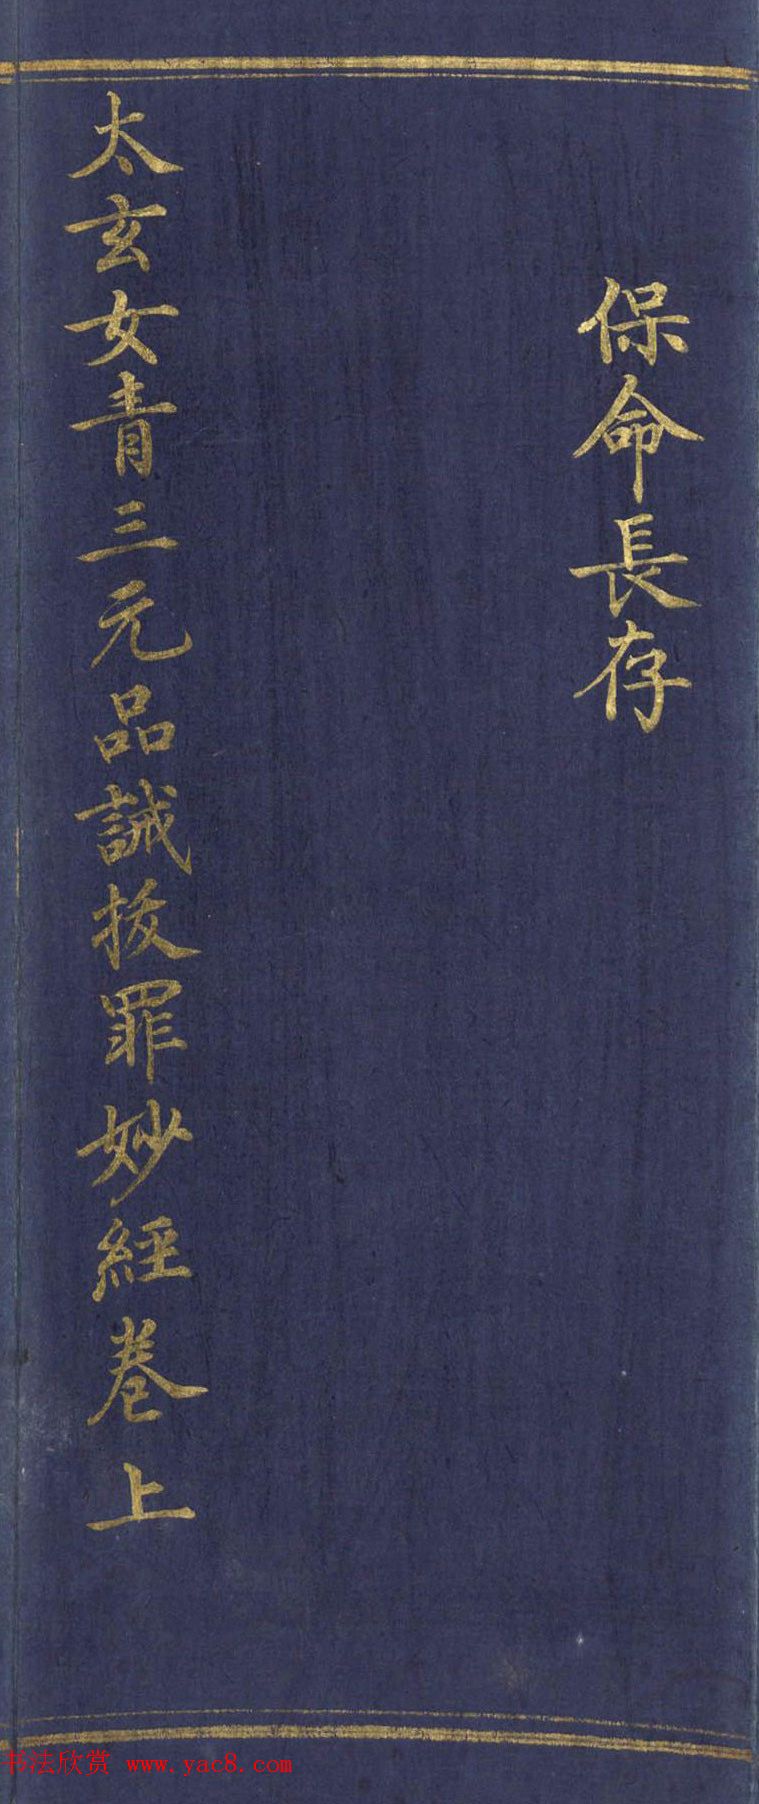 保命長存
太玄女青三元品誡拔罪妙經卷上
书法欣赏 www.yac8.com